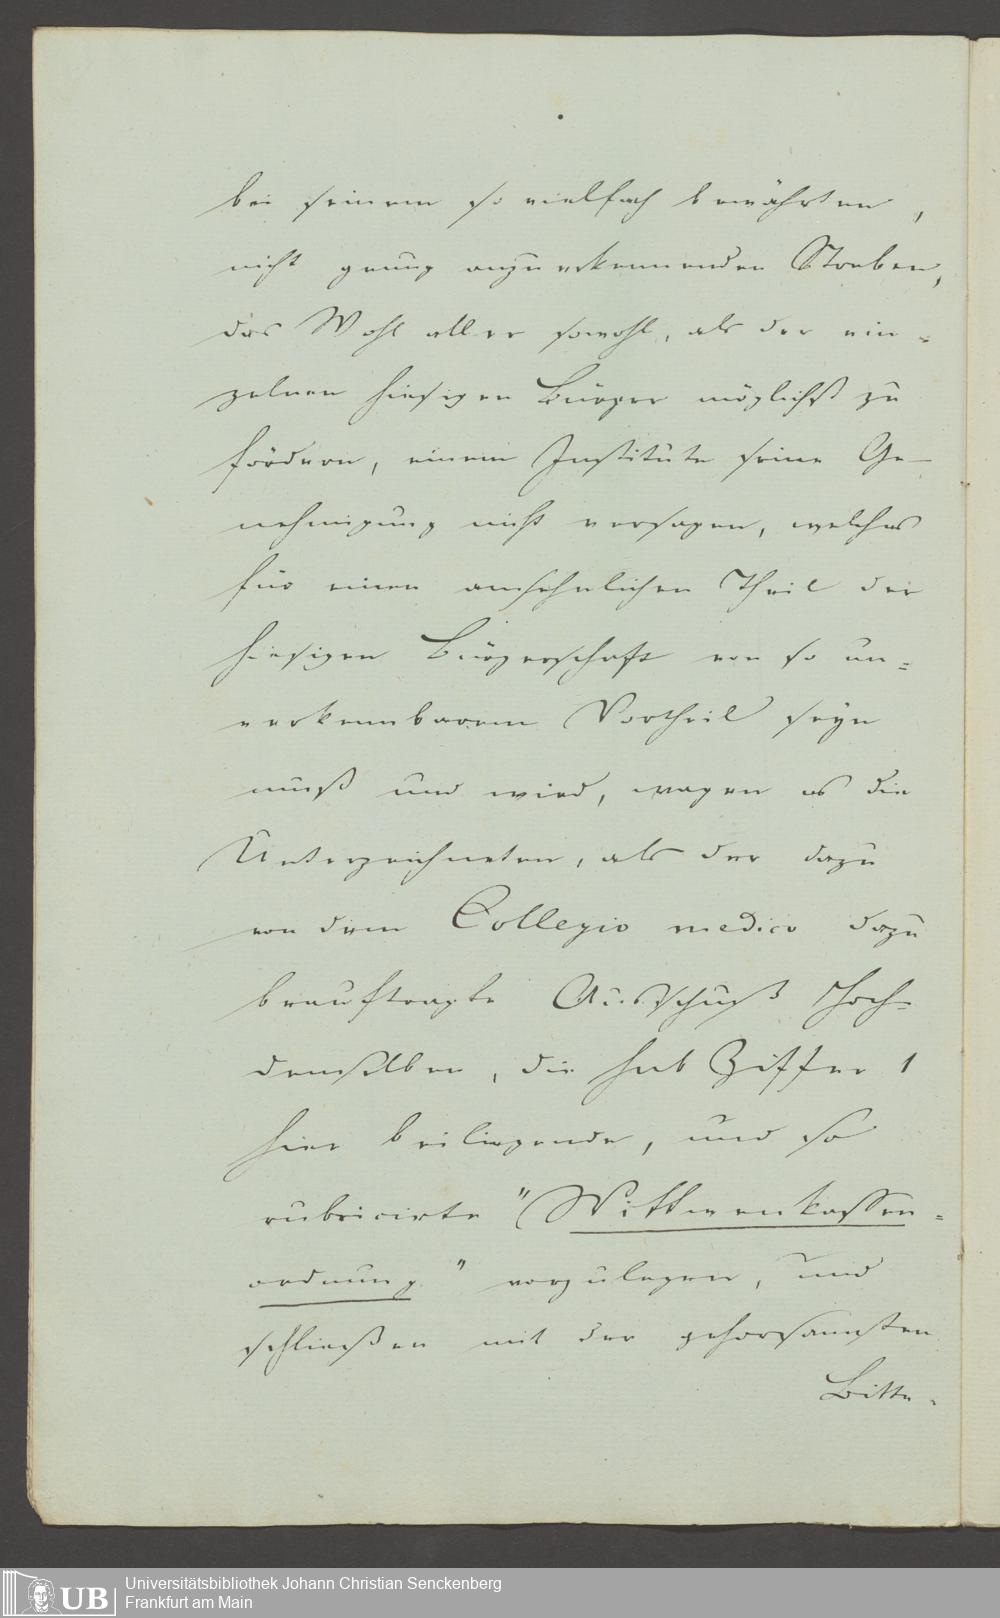 bei seinem so vielfach bewährten,
nicht genug anzuerkennenden Streben,
das Wohl aller sowohl, als der ein=
zelnen hiesigen Bürger möglichst zu
fördern, einem Institute seine Ge-
nehmigung nicht versagen, welches
für einen ansehnlichen Theil der
hiesigen Bürgerschaft von so un=
verkennbarem Vortheil seyn
muß und wird, wagen es die
Unterzeichneten, als der dazu
von dem Collegio medico dazu
beauftragte Ausschuß Hoch-
demselben, die sub Ziffer 1
hier beiliegende, und so
rubricirte "Wittwenkassen=
ordnung" vorzulegen, und
schließen mit der gehorsamsten
Bitte.
Universitätsbibliothek Johann Christian Senckenberg
Frankfurt am Main
UB